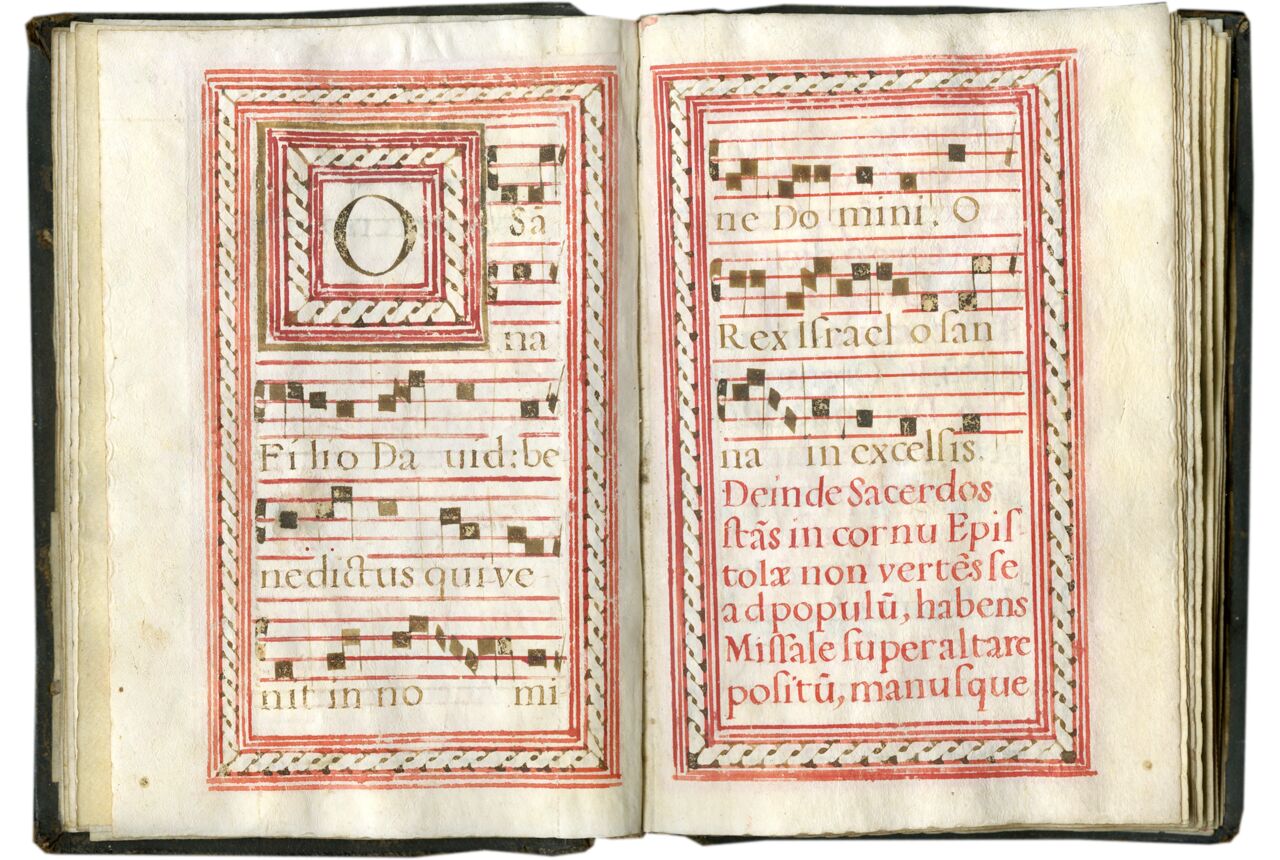 O
Sã
na
Filio Da uid: be
nedictus qui ve
nit in no mi-
ne Do mini. O
Rex Iſrael o ſan
na in excelſis.
Deinde Sacerdos
ſtãs in cornu Epiſ-
tolæ non vertẽs ſe
ad populũ, habens
Miſſale ſuper altare
poſitũ, manuſque